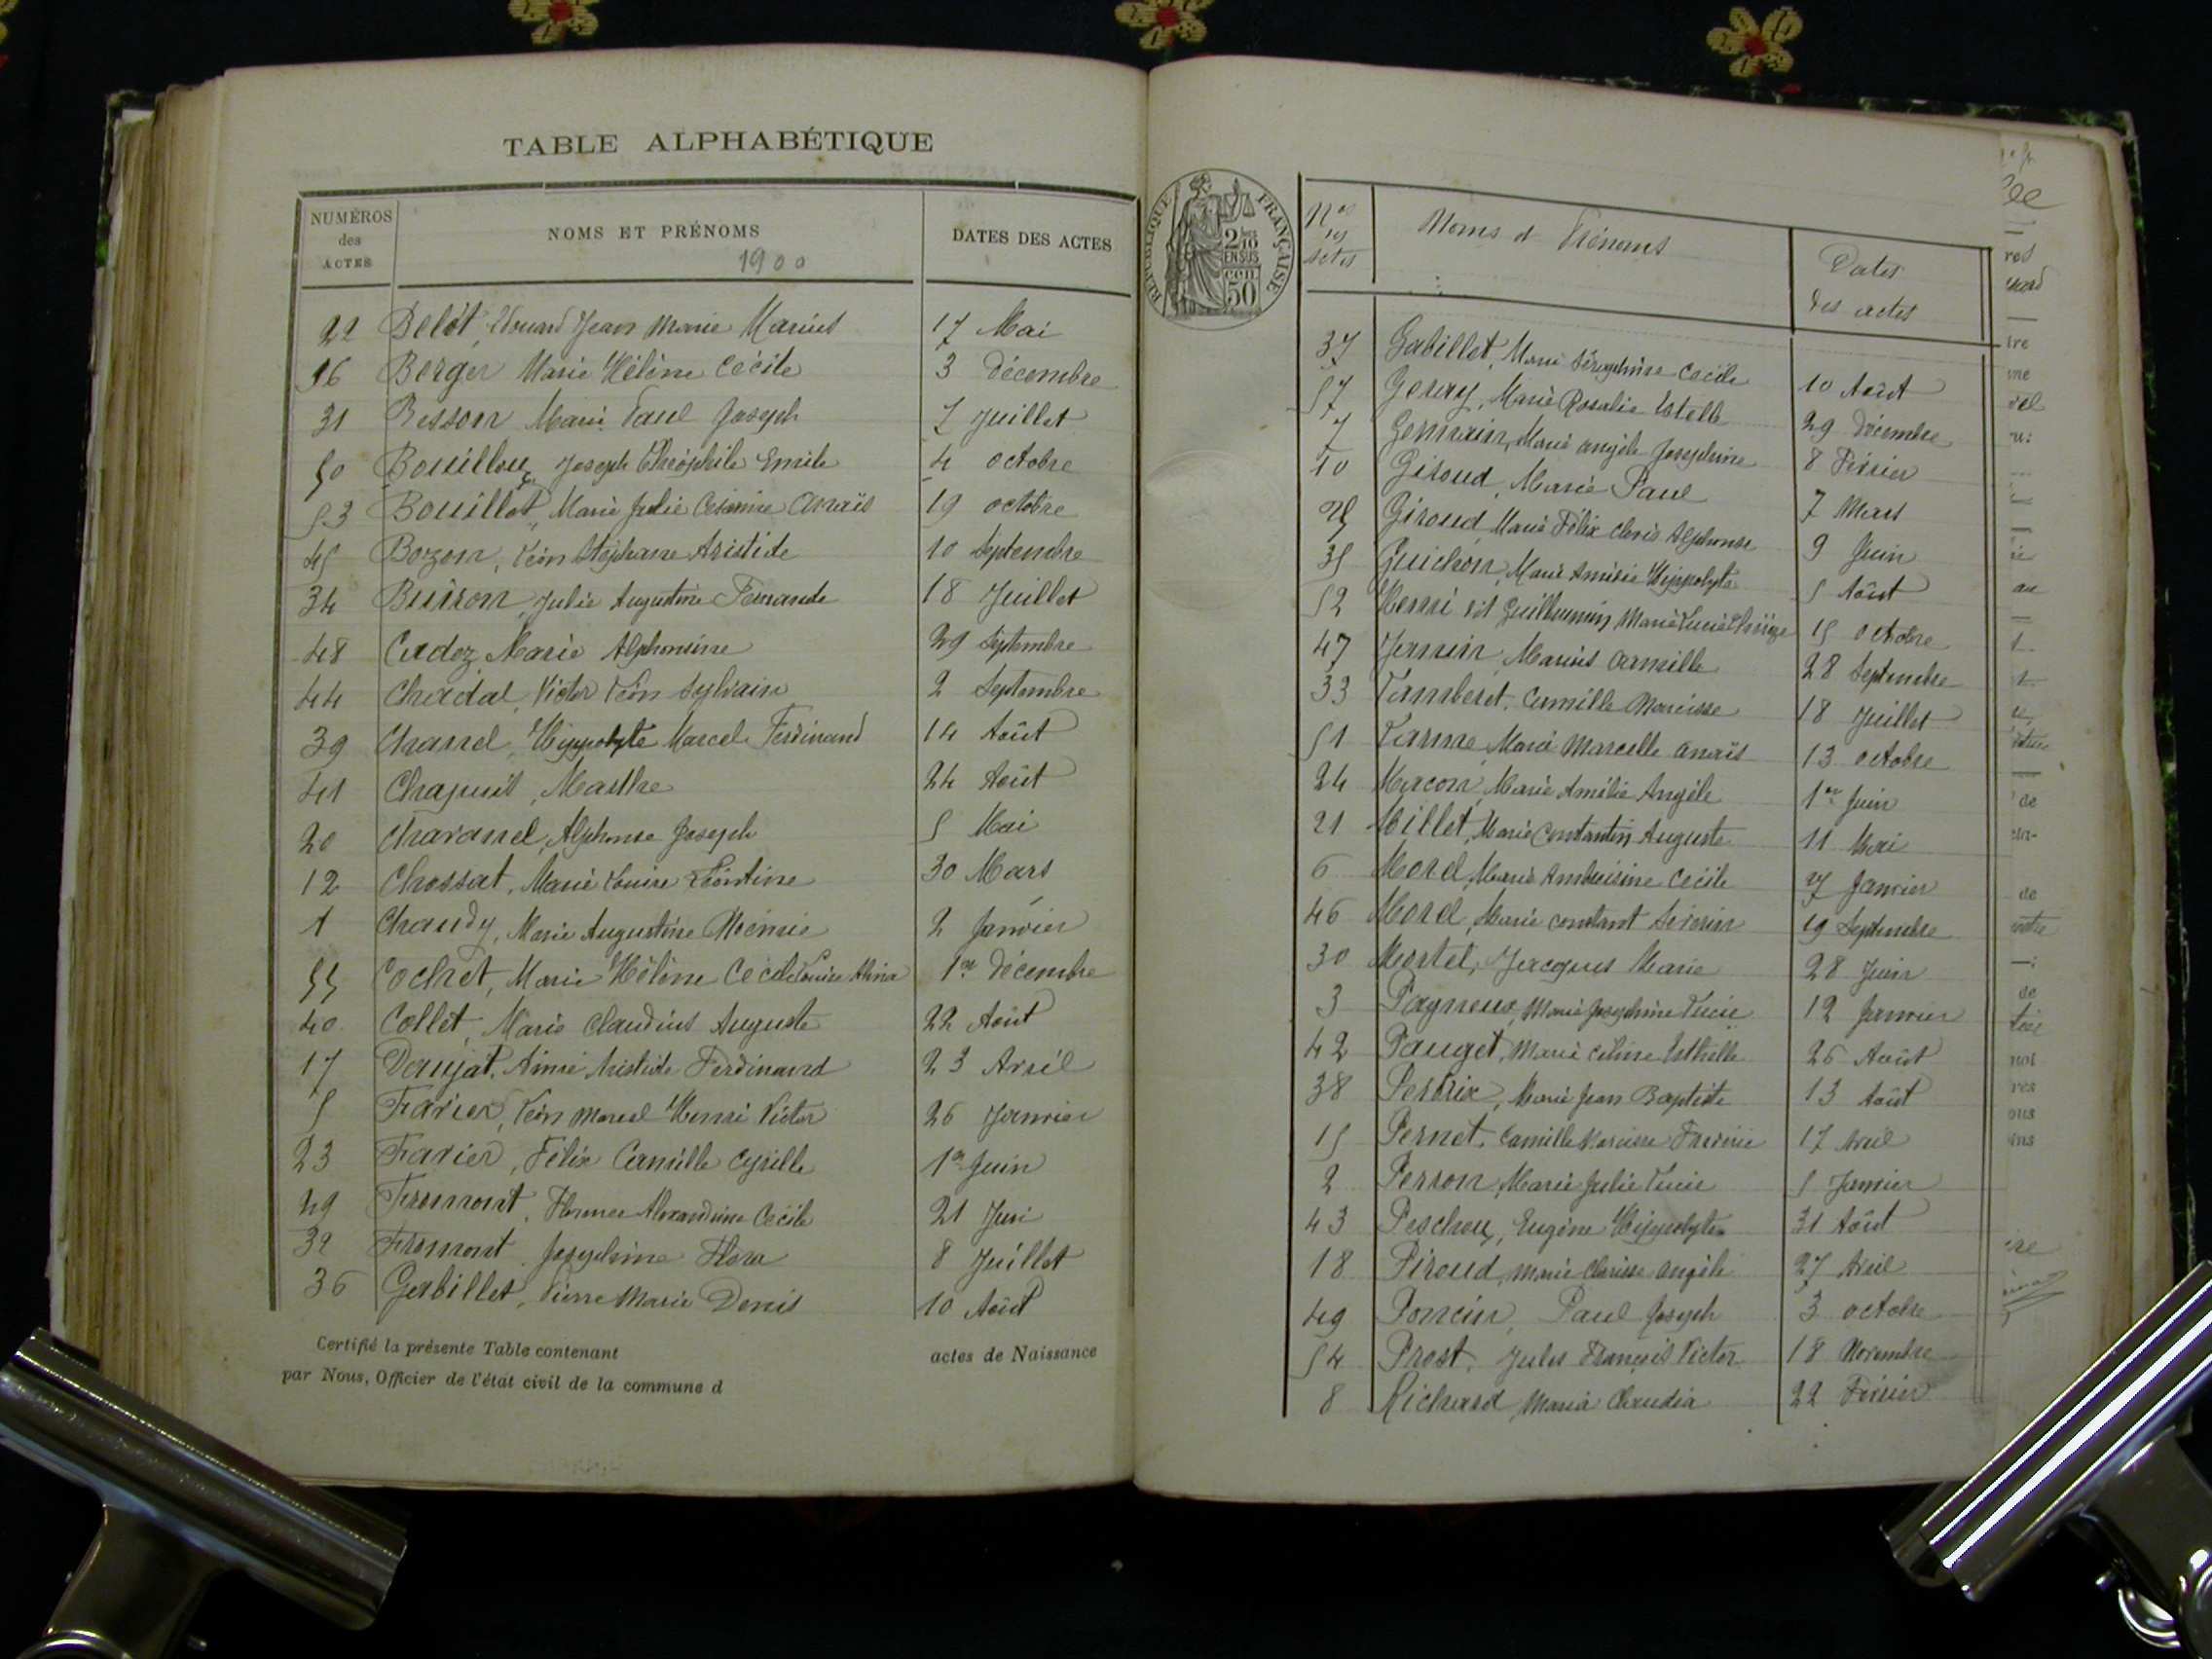 TABLE ALPHABÉTIQUE
NUMÉROS des ACTES NOMS ET PRÉNOMS DATES DES ACTES
1900
22 Belot, Edouard Jean Marie Marius 17 Mai
56 Berger Marie Hélène Cécile 3 Décembre
31 Besson Marie Paul Joseph 7 Juillet
50 Bouilloux Joseph Théophile Emile 4 octobre
53 Bouillot, Marie Julie Césarine Anaïs 19 octobre
45 Bozon, Léon Stéphane Aristide 10 Septembre
34 Buiron Julie Augustine Fernande 18 Juillet
48 Cadoz Marie Alphonsine 29 Septembre
44 Chadal Victor Léon Sylvain 2 Septembre
39 Chanel, Hippolyte Marcel Ferdinand 14 Août
41 Chapuis, Marthe 24 Août
20 Charanel, Alphonse Joseph 5 Mai
12 Chossat, Marie Louise Léontine 30 Mars
1 Chaudy, Marie Augustine Noémie 2 Janvier
55 Cochet, Marie Hélène Cécile Louise Alina 1er Décembre
40 Collet, Marie Claudius Auguste 22 Août
17 Daujat, Aimé Aristide Ferdinand 23 Avril
5 Favier, Léon Marcel Henri Victor 26 Janvier
23 Favier, Félix Camille Cyrille 1er Juin
29 Fromont, Florence Alexandrine Cécile 21 Juin
32 Fromont Joséphine Flora 8 Juillet
36 Gabillet, Pierre Marie Denis 10 Août
Certifié la présente Table contenant actes de Naissance
par Nous, Officier de l'état civil de la commune d
RÉPUBLIQUE FRANÇAISE
2/10
EN SUS
cen.
50
Nos des actes Noms et Prénoms Dates des actes
37 Gabillet, Marie Séraphine Cécile 10 Août
57 Geray, Marie Rosalie Estelle 29 Décembre
7 Germain, Marie Angèle Joséphine 8 Février
10 Giroud, Marie Paul 7 Mars
25 Giroud Marie Félix Clovis Alphonse 9 Juin
35 Guichon, Marie Amédée Hippolyte 5 Août
52 Henri dit Guillaumin Marie Lucie 15 octobre
47 Jannin, Marius Camille 28 Septembre
33 Lamberet, Camille Narcisse 18 Juillet
51 Larme Marie Marcelle Anaïs 13 octobre
24 Macon, Marie Amélie Angèle 1er Juin
21 Millet, Marie Constantin Auguste 11 Mai
6 Morel, Marie Ambroisine Cécile 27 Janvier
46 Morel, Marie Constant Séverin 19 Septembre
30 Mortel, Jacques Marie 28 Juin
3 Pagneux, Marie Joséphine Lucie 12 Janvier
42 Pauget, Marie Céline Esthelle 26 Août
38 Perdrix, Marie Jean Baptiste 13 Août
15 Pernet, Camille Narcisse 17 Avril
2 Perron, Marie Julie Lucie 5 Janvier
43 Peschoux, Eugène Hippolyte 31 Août
18 Piroud, Marie Clarisse Angèle 27 Avril
49 Poncin, Paul Joseph 3 octobre
54 Prost, Jules François Victor 18 Novembre
8 Richard, Maria Claudia 22 Février